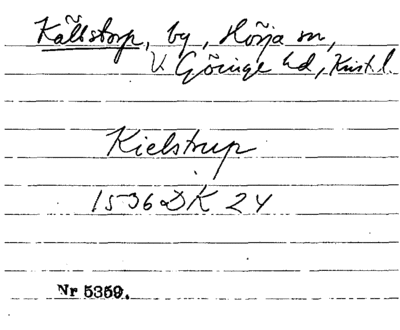 Källstorp, by, Hörja sn,
V. Göinge hd, Krist. l.
Kielstrup
1536 DK 24
Nr 5359.